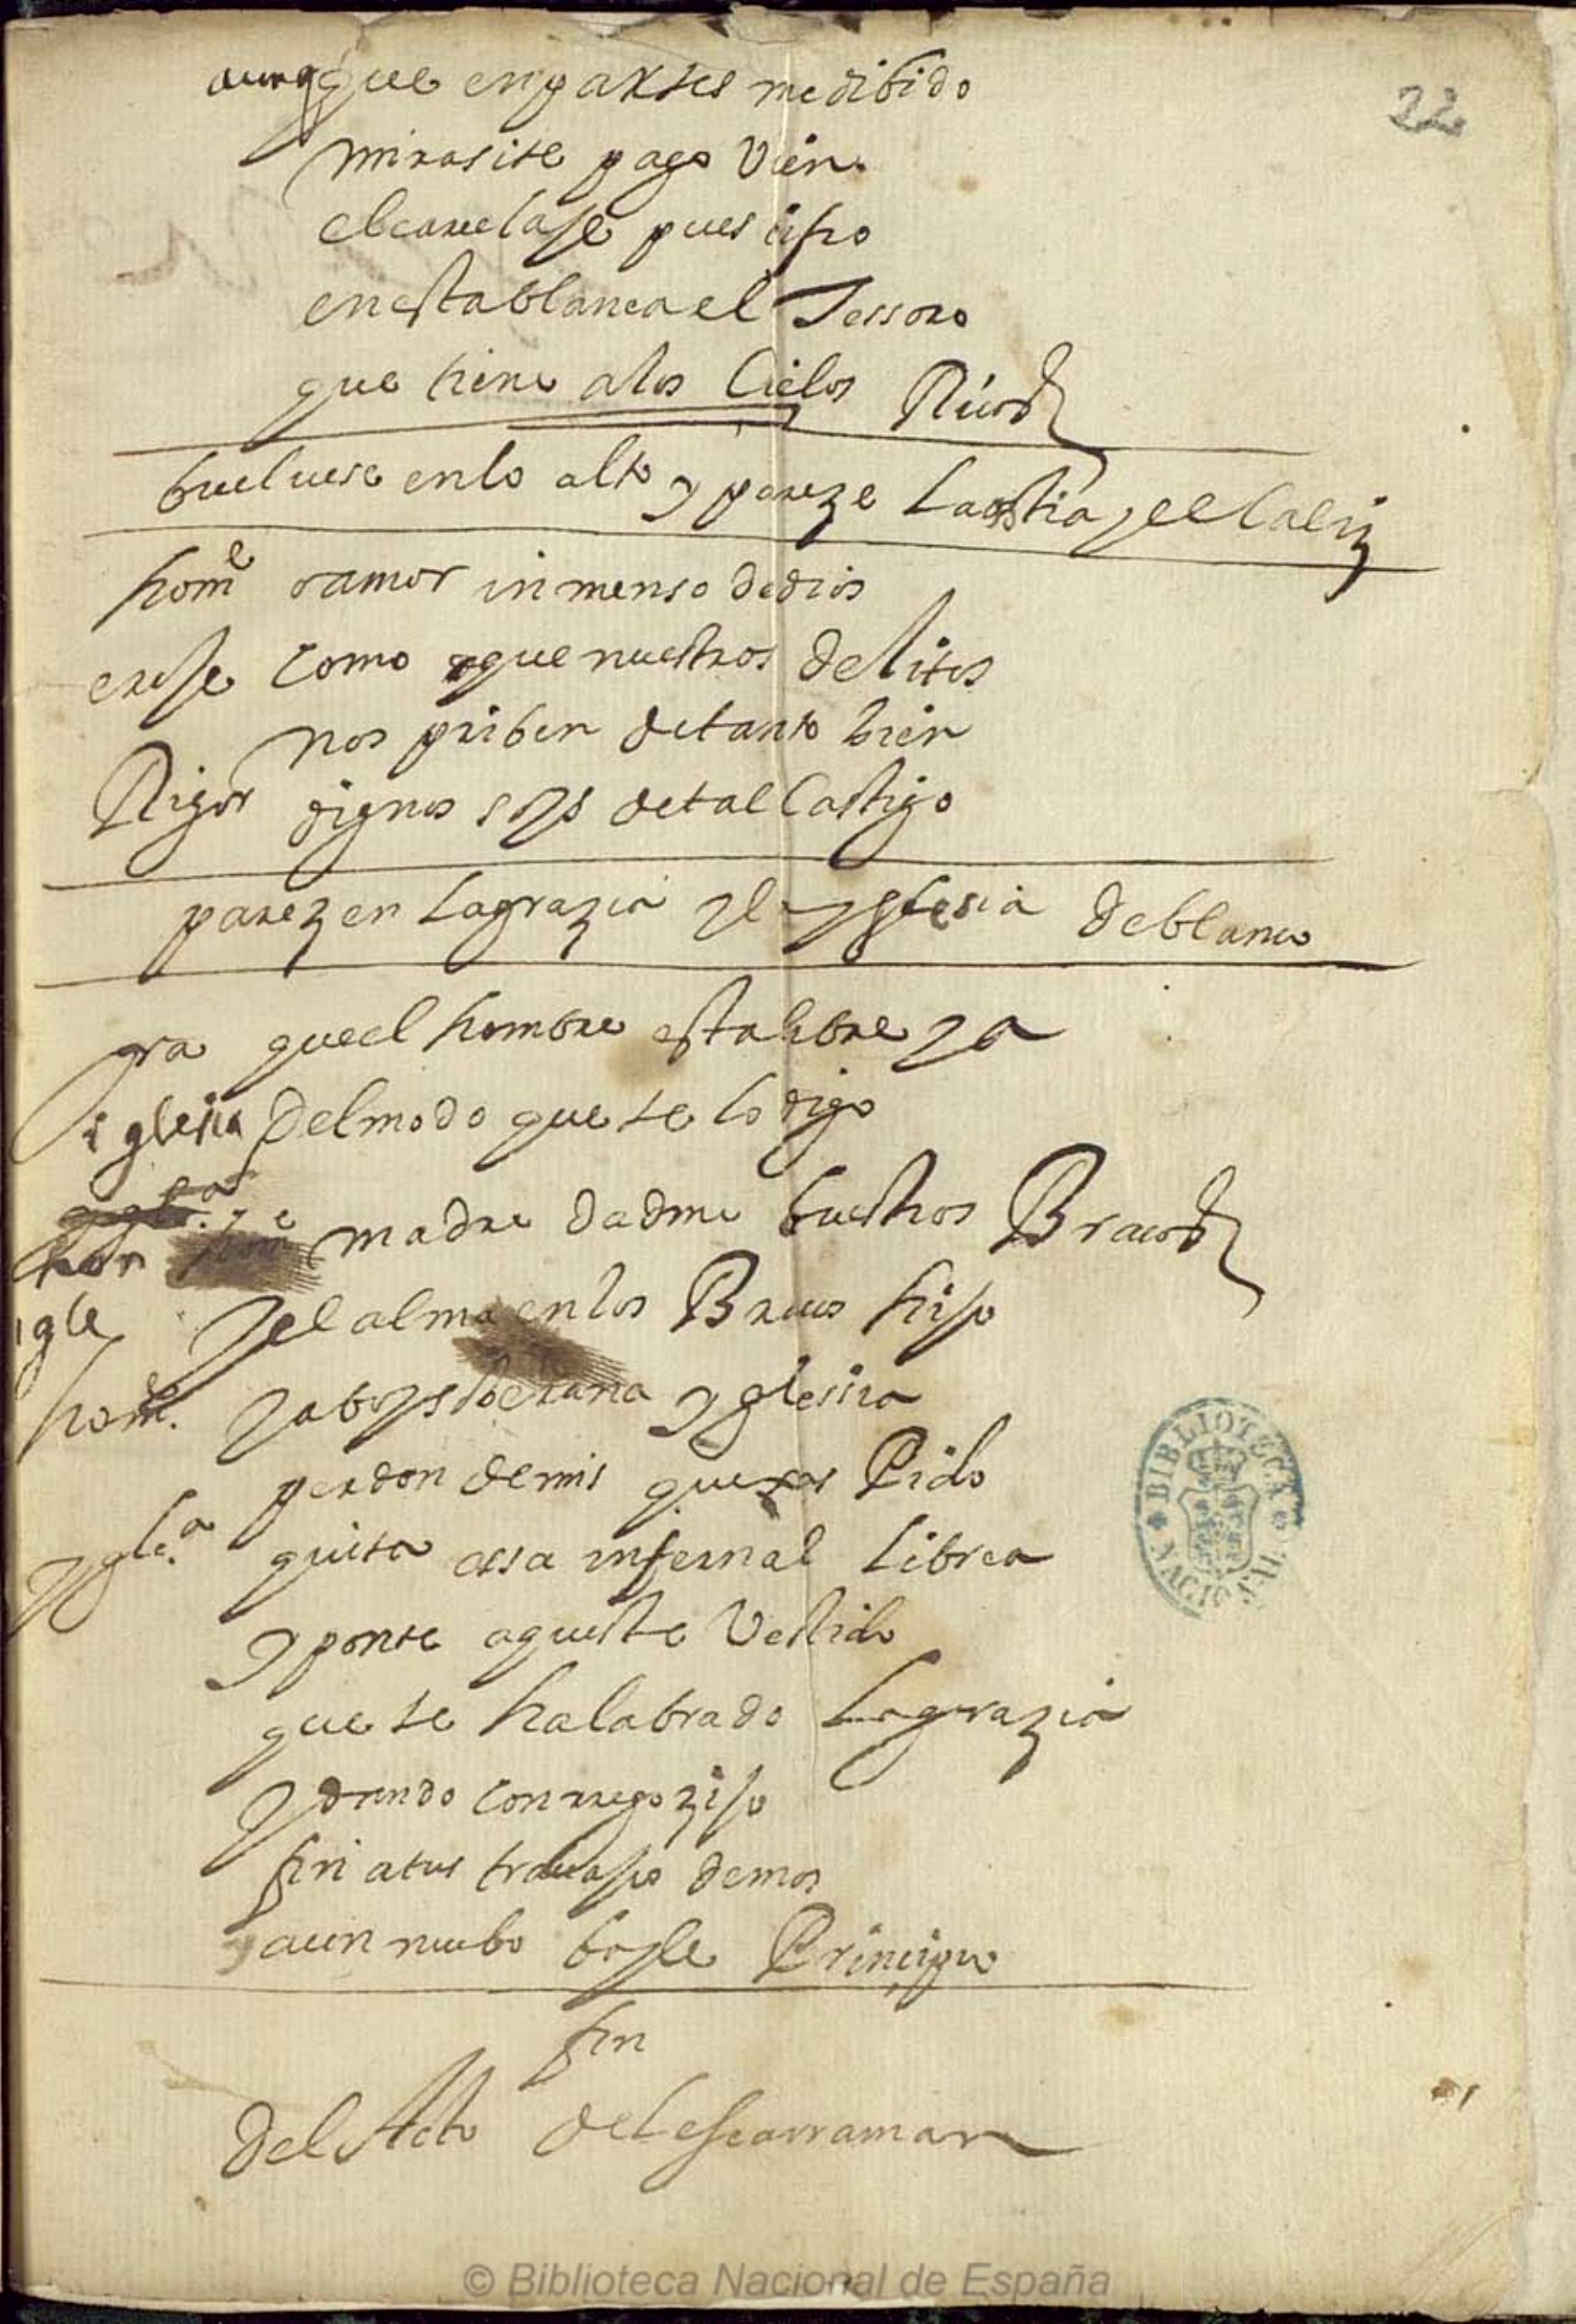 22
aunq que en partes me dibido
mira si te pago vien
el carcelaje pues cifro
en esta blanca el Tessoro
que tiene a los Cielos Ricos
buelvese en lo alto y pareze La ostia y el Caliz
home o amor inmenso de dios
como que nuestros delitos
nos priben de tanto bien
Rigor dignos soys de tal Castigo
parezen La grazia y la yglesia de blanco
gra que el hombre esta libre ya
iglesia Del modo que te lo digo
hon madre dadme buestros Braços
igle y el alma en los Braços hijo
home. y a bos soberana yglesia
perdon de mis quexas Pido
ygle.a quita essa infernal Librea
y ponte aqueste Vestido
que te ha labrado La grazia
y dando con rregozijo
fin a tus trabajos demos
y a un nuebo bayle Principio
fin
Del Acto del escarraman
BIBLIOTECA NACIONAL
© Biblioteca Nacional de España